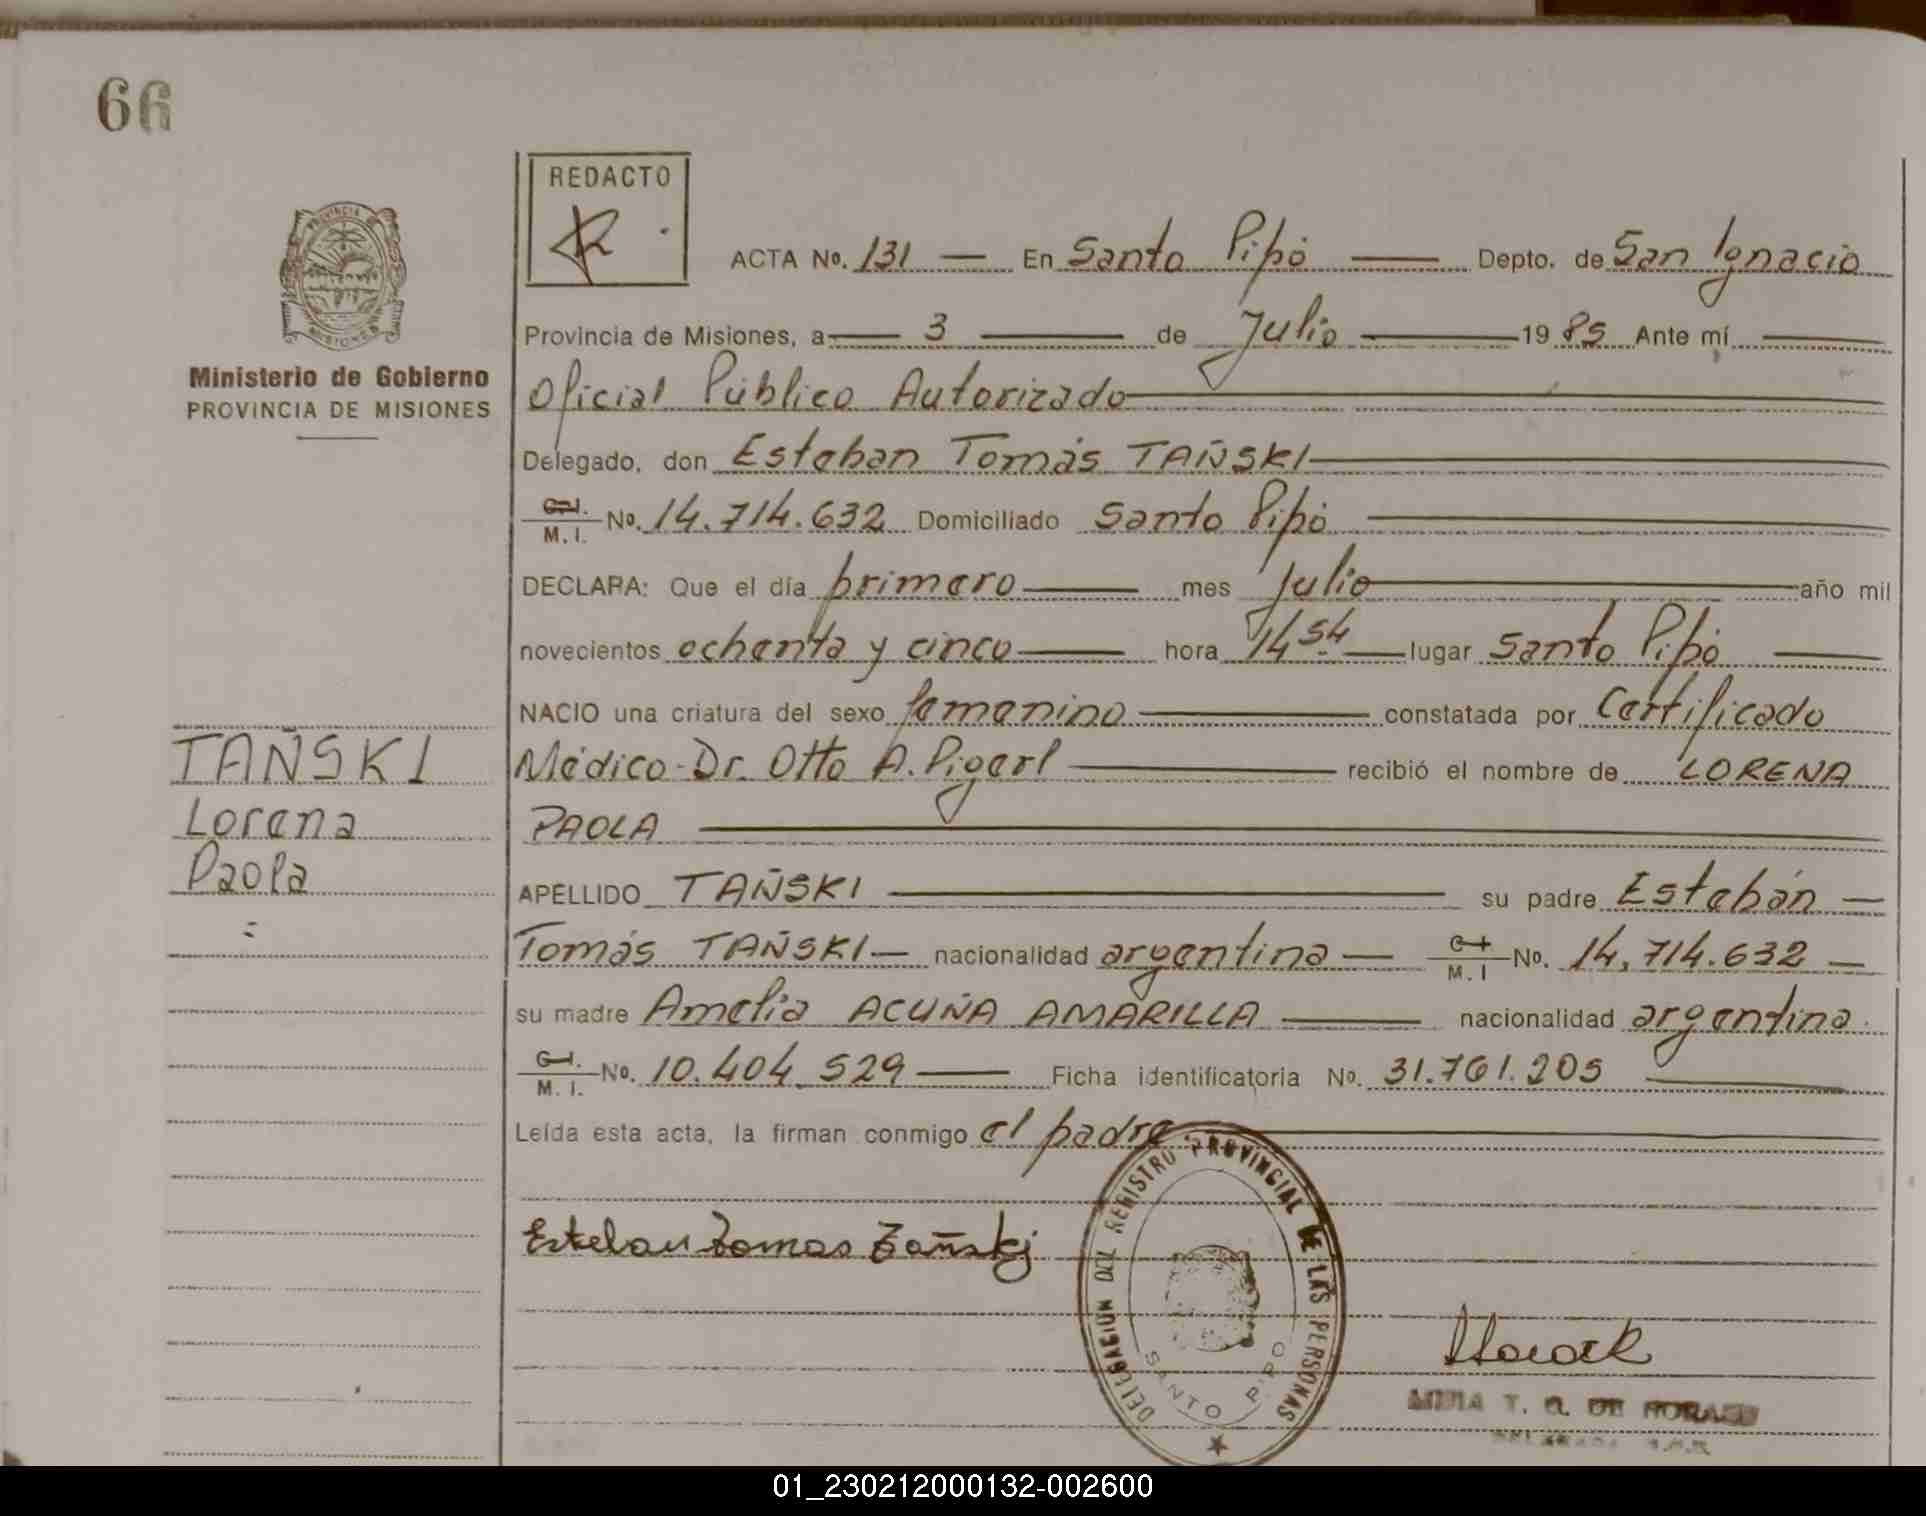 66
REDACTO
ACTA No. 131 — En Santo Pipó — Depto. de San Ignacio
Provincia de Misiones, a — 3 — de Julio — 1985 Ante mí —
Oficial Público Autorizado —
Ministerio de Gobierno
PROVINCIA DE MISIONES
Delegado, don Esteban Tomás TAÑSKI —
C.I. M.I. No. 14.714.632 Domiciliado Santo Pipó —
DECLARA: Que el día primero — mes Julio — año mil
novecientos ochenta y cinco — hora 14 54 — lugar Santo Pipó —
NACIO una criatura del sexo femenino — constatada por Certificado
Médico - Dr. Otto A. Pigerl — recibió el nombre de LORENA
PAOLA —
TAÑSKI
Lorena
Paola
=
APELLIDO TAÑSKI — su padre Estebán —
Tomás TAÑSKI — nacionalidad argentina — C.I. M.I No. 14.714.632 —
su madre Amelia ACUÑA AMARILLA — nacionalidad argentina.
C.I. M.I. No. 10.404.529 — Ficha identificatoria No. 31.761.205 —
Leída esta acta, la firman conmigo el padre —
Esteban Tomas Tañski
DELEGACION DEL REGISTRO PROVINCIAL DE LAS PERSONAS
SANTO PIPO
T. G. DE
01_230212000132-002600